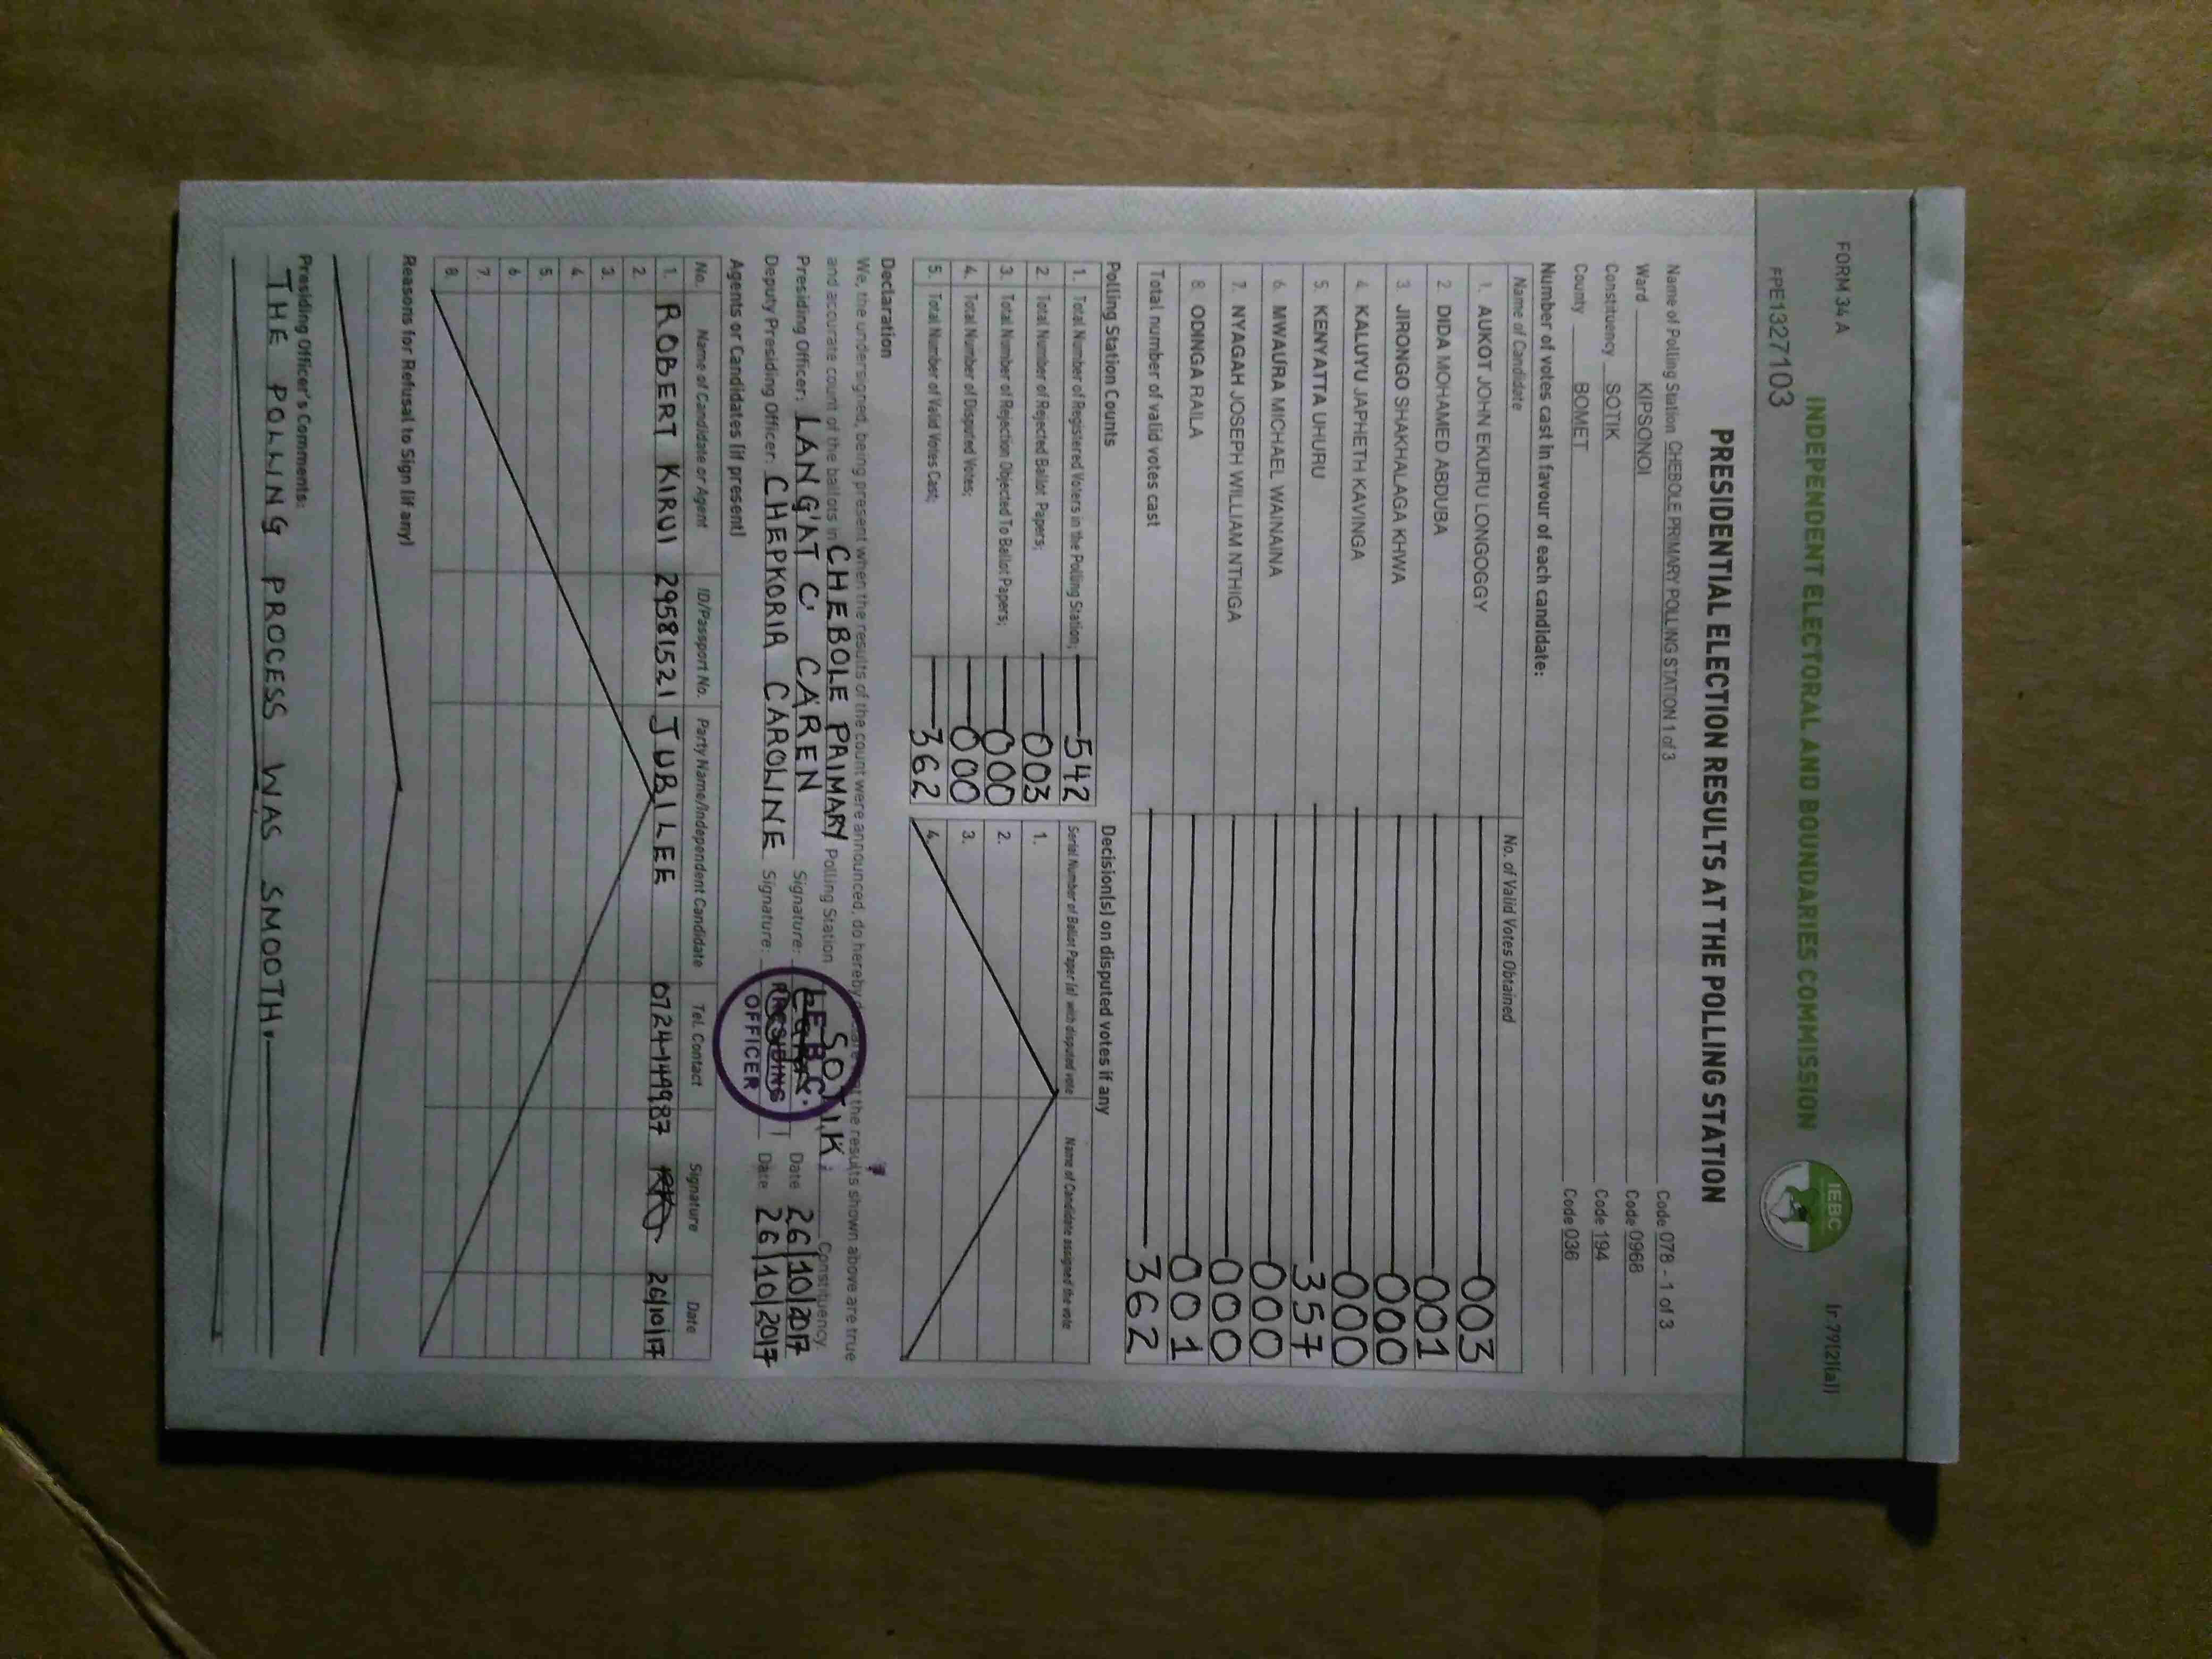 FORM 34 A
(r.79(2)(a))
INDEPENDENT ELECTORAL AND BOUNDARIES COMMISSION
IEBC
FPE1327103
PRESIDENTIAL ELECTION RESULTS AT THE POLLING STATION
Name of Polling Station CHEBOLE PRIMARY POLLING STATION 1 of 3 Code 078 - 1 of 3
Ward KIPSONOI Code 0968
Constituency SOTIK Code 194
County BOMET Code 036
Number of votes cast in favour of each candidate:
Name of Candidate No. of Valid Votes Obtained
1. AUKOT JOHN EKURU LONGOGGY 003
2. DIDA MOHAMED ABDUBA 001
3. JIRONGO SHAKHALAGA KHWA 000
4. KALUYU JAPHETH KAVINGA 000
5. KENYATTA UHURU 357
6. MWAURA MICHAEL WAINAINA 000
7. NYAGAH JOSEPH WILLIAM NTHIGA 000
8. ODINGA RAILA 001
Total number of valid votes cast 362
Polling Station Counts
1. Total Number of Registered Voters in the Polling Station; 542
2. Total Number of Rejected Ballot Papers; 003
3. Total Number of Rejection Objected To Ballot Papers; 000
4. Total Number of Disputed Votes; 000
5. Total Number of Valid Votes Cast; 362
Decision(s) on disputed votes if any
Serial Number of Ballot Paper (s) with disputed vote Name of Candidate assigned the vote
1.
2.
3.
4.
Declaration
We, the undersigned, being present when the results of the count were announced, do hereby the results shown above are true
and accurate count of the ballots in CHEBOLE PAIMARY Polling Station SOTIK. Constituency
Presiding Officer: LANG'AT C. CAREN Signature: Date 26/10/2017
Deputy Presiding Officer: CHEPKORIA CAROLINE Signature: Date 26/10/2017
IEBC
PRESIDING
OFFICER
Agents or Candidates (if present)
No. Name of Candidate or Agent ID/Passport No. Party Name/Independent Candidate Tel. Contact Signature Date
1. ROBERT KIRUI 29581521 JUBILEE 0724-149987 26/10/17
2.
3.
4.
5.
6.
7.
8.
Reasons for Refusal to Sign (if any)
Presiding Officer's Comments:
THE POLLING PROCESS WAS SMOOTH.